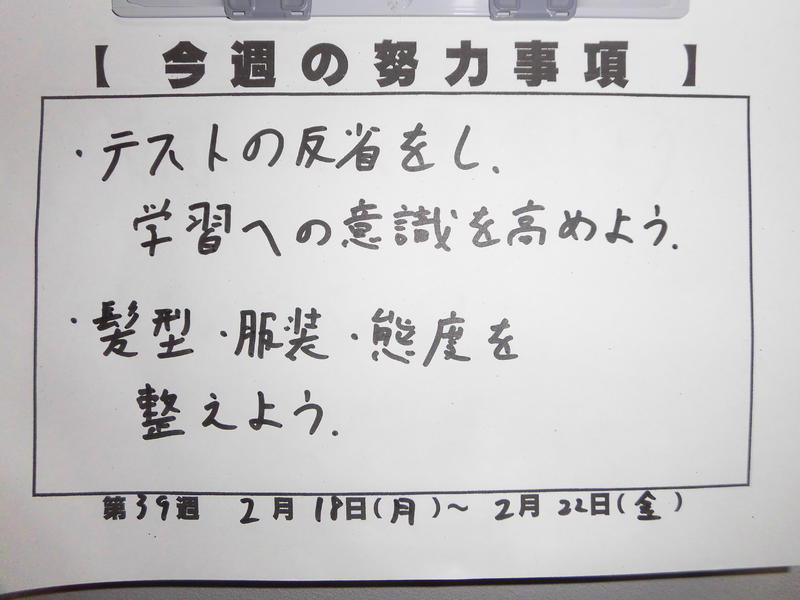 【今週の努力事項】
・テストの反省をし、
学習への意識を高めよう.
・髪型・服装・態度を
整えよう.
第39週 2月18日(月)～2月22日(金)